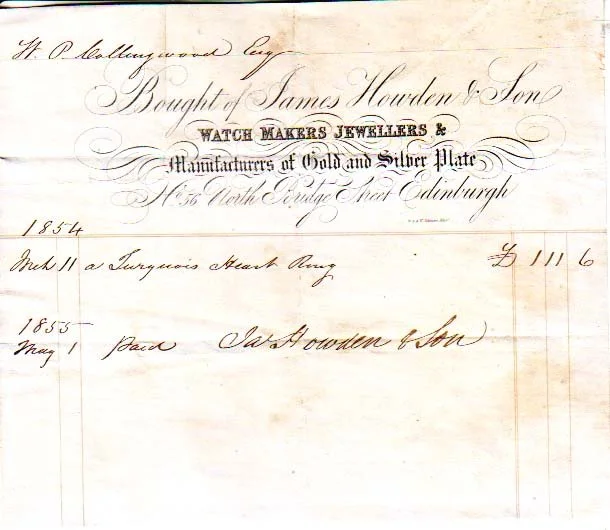 W. P. Collingwood Esq
Bought of James Howden & Son
WATCH MAKERS JEWELLERS &
Manufacturers of Gold and Silver Plate
No. 56 North Bridge Street Edinburgh
1854
Mch 11 a Turquois Heart Ring £ 1 11 6
1855
May 1 Paid Jas Howden & Son